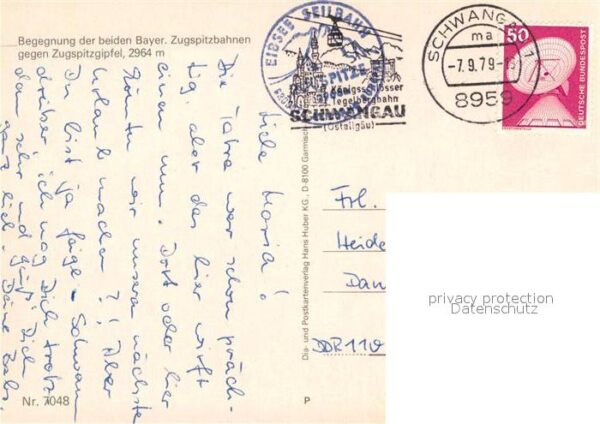 Begegnung der beiden Bayer. Zugspitzbahnen
gegen Zugspitzgipfel, 2964 m
EIBSEE SEILBAHN
SPITZE
Königsschlösser
Tegelbergbahn
SCHWANGAU
(Ostallgäu)
SCHWANGAU 1
ma
-7.9.79-
8959
50
DEUTSCHE BUNDESPOST
Liebe Maria!
Die Tatra war schon präch-
tig, aber das hier wirft
einen um. Dort oder hier
wir unseren nächsten
Urlaub machen?! Aber
Du bist ja feige. Schwamm
drüber ich mag Dich trotz-
dem sehr und grüße Dich
ganz lieb. Deine
Dia- und Postkartenverlag Hans Huber KG., D-8100 Garmisch
Frl.
Heide
DDR 110
privacy protection
Datenschutz
Nr. 7048
P